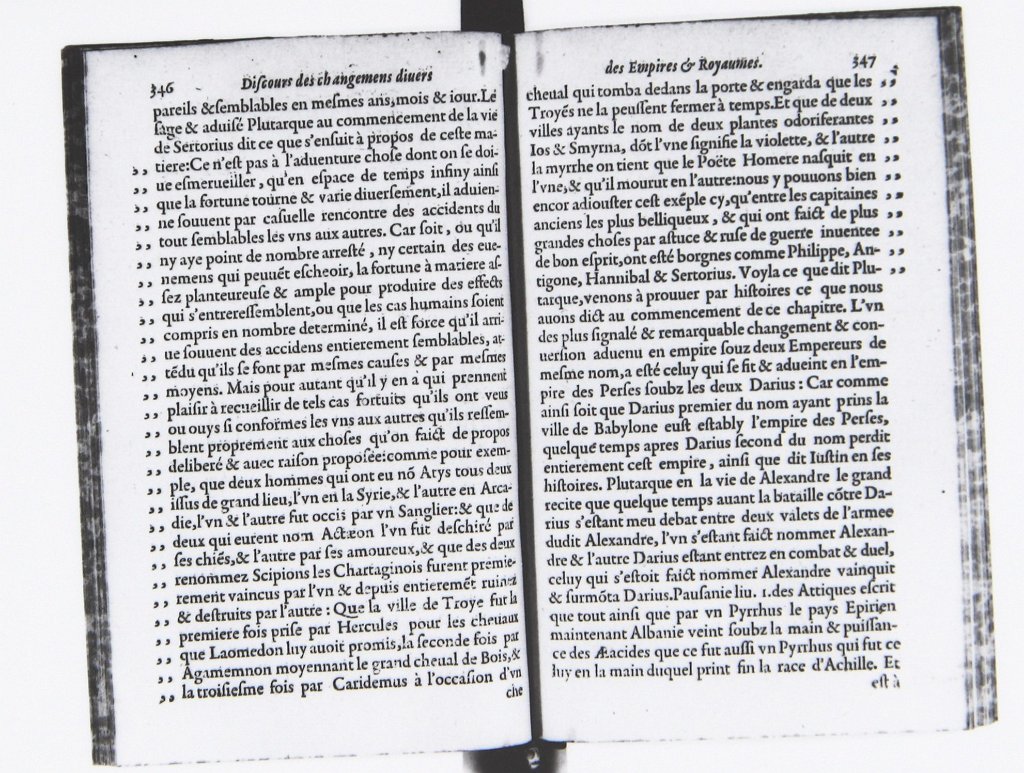 346 Diſcours des changemens diuers
pareils & ſemblables en meſmes ans, mois & iour. Le
ſage & aduiſé Plutarque au commencement de la vie
de Sertorius dit ce que s'enſuit à propos de ceſte ma-
,, tiere: Ce n'eſt pas à l'aduenture choſe dont on ſe doi-
,, ue eſmerueiller, qu'en eſpace de temps infiny ainſi
,, que la fortune tourne & varie diuerſement, il aduien-
,, ne ſouuent par caſuelle rencontre des accidents du
,, tout ſemblables les vns aux autres. Car ſoit, ou qu'il
,, ny aye point de nombre arreſté, ny certain des eue-
,, nemens qui peuuẽt eſcheoir, la fortune à matiere aſ-
,, ſez planteureuſe & ample pour produire des effects
,, qui s'entrereſſemblent, ou que les cas humains ſoient
,, compris en nombre determiné, il eſt force qu'il arri-
,, ue ſouuent des accidens entierement ſemblables, at-
,, tẽdu qu'ils ſe font par meſmes cauſes & par meſmes
,, moyens. Mais pour autant qu'il y en a qui prennent
,, plaiſir à recueillir de tels cas fortuits qu'ils ont veus
,, ou ouys ſi conformes les vns aux autres qu'ils reſſem-
,, blent proprement aux choſes qu'on faict de propos
,, deliberé & auec raiſon propoſée: comme pour exem-
,, ple, que deux hommes qui ont eu nõ Atys tous deux
,, iſſus de grand lieu, l'vn en la Syrie, & l'autre en Arca-
,, die, l'vn & l'autre fut occis par vn Sanglier: & que de
,, deux qui eurent nom Actæon l'vn fut deſchiré par
,, ſes chiẽs, & l'autre par ſes amoureux, & que des deux
,, renommez Scipions les Chartaginois furent premie-
,, rement vaincus par l'vn & depuis entieremẽt ruinez
,, & deſtruits par l'autre: Que la ville de Troye fut la
,, premiere fois priſe par Hercules pour les cheuaux
,, que Laomedon luy auoit promis, la ſeconde fois par
,, Agamemnon moyennant le grand cheual de Bois, &
,, la troiſieſme fois par Caridemus à l'occaſion d'vn
che
des Empires & Royaumes. 347
cheual qui tomba dedans la porte & engarda que les ,,
Troyẽs ne la peuſſent fermer à temps. Et que de deux ,,
villes ayants le nom de deux plantes odoriferantes ,,
Ios & Smyrna, dõt l'vne ſignifie la violette, & l'autre ,,
la myrrhe on tient que le Poëte Homere naſquit en ,,
l'vne, & qu'il mourut en l'autre: nous y pouuons bien ,,
encor adiouſter ceſt exẽple cy, qu'entre les capitaines ,,
anciens les plus belliqueux, & qui ont faict de plus ,,
grandes choſes par aſtuce & ruſe de guerre inuentee ,,
de bon eſprit, ont eſté borgnes comme Philippe, An- ,,
tigone, Hannibal & Sertorius. Voyla ce que dit Plu- ,,
tarque, venons à prouuer par hiſtoires ce que nous
auons dict au commencement de ce chapitre. L'vn
des plus ſignalé & remarquable changement & con-
uerſion aduenu en empire ſouz deux Empereurs de
meſme nom, a eſté celuy qui ſe fit & adueint en l'em-
pire des Perſes ſoubz les deux Darius: Car comme
ainſi ſoit que Darius premier du nom ayant prins la
ville de Babylone euſt eſtably l'empire des Perſes,
quelque temps apres Darius ſecond du nom perdit
entierement ceſt empire, ainſi que dit Iuſtin en ſes
hiſtoires. Plutarque en la vie de Alexandre le grand
recite que quelque temps auant la bataille cõtre Da-
rius s'eſtant meu debat entre deux valets de l'armee
dudit Alexandre, l'vn s'eſtant faict nommer Alexan-
dre & l'autre Darius eſtant entrez en combat & duel,
celuy qui s'eſtoit faict nommer Alexandre vainquit
& ſurmõta Darius. Pauſanie liu. 1. des Attiques eſcrit
que tout ainſi que par vn Pyrrhus le pays Epirien
maintenant Albanie veint ſoubz la main & puiſſan-
ce des Æacides que ce fut auſſi vn Pyrrhus qui fut ce
luy en la main duquel print fin la race d'Achille. Et
eſt à